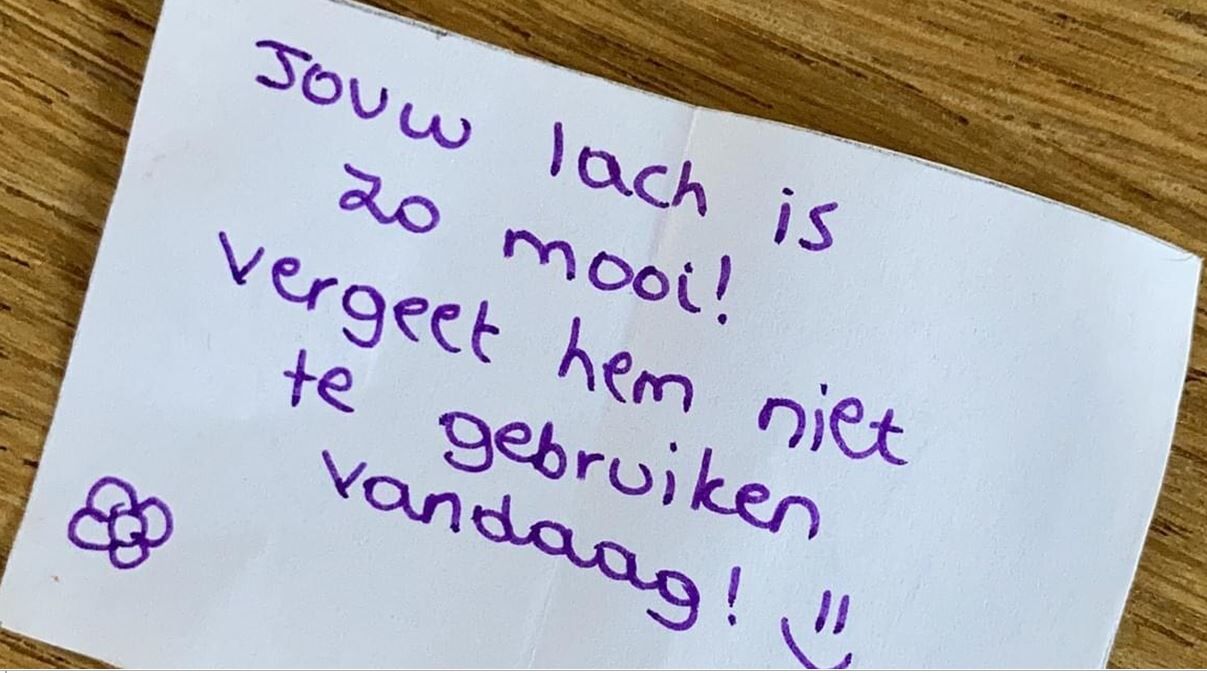 Jouw lach is
zo mooi!
vergeet hem niet
te gebruiken
vandaag!